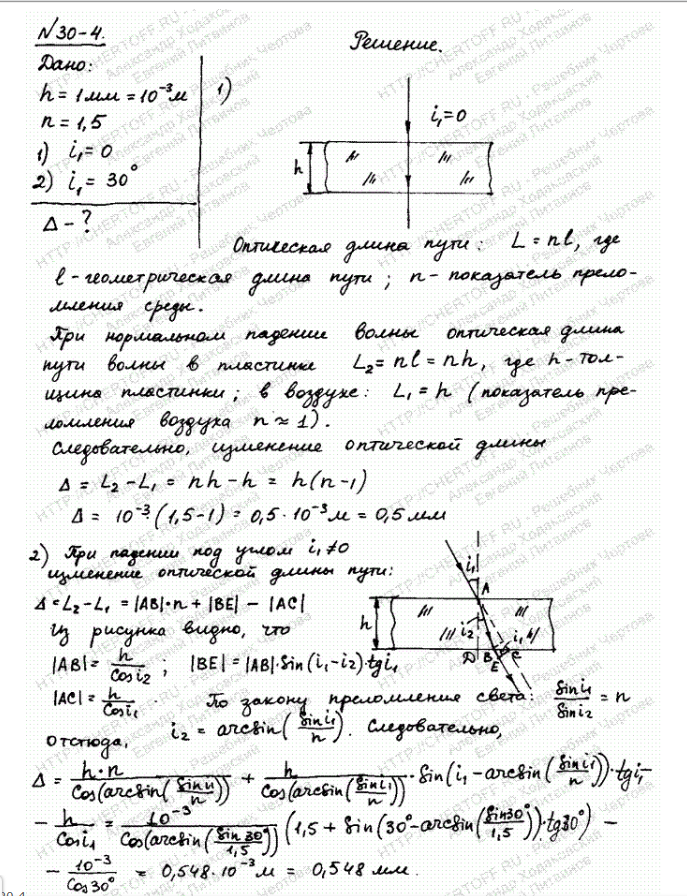 №30-4.
Решение.
Дано:
h = 1мм = 10⁻³м
n = 1,5
1) i₁ = 0
2) i₁ = 30°
Δ - ?
1)
i₁=0
h
Оптическая длина пути: L = nl, где
l - геометрическая длина пути; n - показатель прело-
мления среды.
При нормальном падении волны оптическая длина
пути волны в пластинке L₂ = nl = nh, где h - тол-
щина пластинки; в воздухе: L₁ = h (показатель пре-
ломления воздуха n ≈ 1).
Следовательно, изменение оптической длины
Δ = L₂ - L₁ = nh - h = h(n-1)
Δ = 10⁻³·(1,5-1) = 0,5·10⁻³м = 0,5 мм
2) При падении под углом i₁≠0
изменение оптической длины пути:
Δ = L₂ - L₁ = |AB|·n + |BE| - |AC|
Из рисунка видно, что
|AB| = h/Cos i₂ ; |BE| = |AB|·Sin(i₁-i₂)·tg i₁
|AC| = h/Cos i₁ . По закону преломления света: Sin i₁/Sin i₂ = n
отсюда, i₂ = arcsin(Sin i₁/n). Следовательно,
Δ = h·n/Cos(arcsin(Sin i₁/n)) + h/Cos(arcsin(Sin i₁/n))·Sin(i₁-arcsin(Sin i₁/n))·tg i₁-
- h/Cos i₁ = 10⁻³/Cos(arcsin(Sin 30°/1,5))(1,5 + Sin(30°-arcsin(Sin30°/1,5))·tg30°) -
- 10⁻³/Cos30° = 0,548·10⁻³м = 0,548 мм.
i₁
A
h
i₂
i₁
D
B
C
E
HTTP://CHERTOFF.RU - Решебник Чертова
Александр Ходаковский
Евгений Литвинов